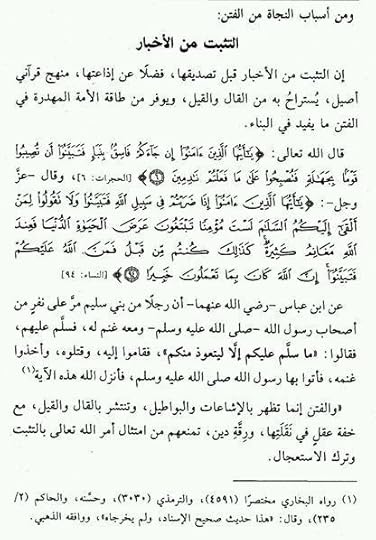 ومن أسباب النجاة من الفتن:
التثبت من الأخبار
إن التثبت من الأخبار قبل تصديقها، فضلًا عن إذاعتها، منهج قرآني
أصيل، يُستراحُ به من القال والقيل، ويوفر من طاقة الأمة المهدرة في
الفتن ما يفيد في البناء.
قال الله تعالى: ﴿يَٰٓأَيُّهَا ٱلَّذِينَ ءَامَنُوٓا۟ إِن جَآءَكُمْ فَاسِقٌۢ بِنَبَإٍ فَتَبَيَّنُوٓا۟ أَن تُصِيبُوا۟
قَوْمًۢا بِجَهَٰلَةٍ فَتُصْبِحُوا۟ عَلَىٰ مَا فَعَلْتُمْ نَٰدِمِينَ ۝٦﴾ [الحجرات: ٦]، وقال -عزَّ
وجل-: ﴿يَٰٓأَيُّهَا ٱلَّذِينَ ءَامَنُوٓا۟ إِذَا ضَرَبْتُمْ فِى سَبِيلِ ٱللَّهِ فَتَبَيَّنُوا۟ وَلَا تَقُولُوا۟ لِمَنْ
أَلْقَىٰٓ إِلَيْكُمُ ٱلسَّلَٰمَ لَسْتَ مُؤْمِنًا تَبْتَغُونَ عَرَضَ ٱلْحَيَوٰةِ ٱلدُّنْيَا فَعِندَ
ٱللَّهِ مَغَانِمُ كَثِيرَةٌ كَذَٰلِكَ كُنتُم مِّن قَبْلُ فَمَنَّ ٱللَّهُ عَلَيْكُمْ
فَتَبَيَّنُوٓا۟ إِنَّ ٱللَّهَ كَانَ بِمَا تَعْمَلُونَ خَبِيرًا ۝٩٤﴾ [النساء: ٩٤]
عن ابن عباس -رضي الله عنهما- أن رجلًا من بني سليم مرَّ على نفرٍ من
أصحاب رسول الله -صلى الله عليه وسلم- ومعه غنم له، فسلَّم عليهم،
فقالوا: «ما سلَّم عليكم إلَّا ليتعوذ منكم»، فقاموا إليه، وقتلوه، وأخذوا
غنمه، فأتوا بها رسول الله صلى الله عليه وسلم، فأنزل الله هذه الآية(١)
«والفتن إنما تظهر بالإشاعات والبواطيل، وتنتشر بالقال والقيل، مع
خفة عقلٍ في نَقَلَتِها، ورِقَّةِ دين، تمنعهم من امتثال أمر الله تعالى بالتثبت
وترك الاستعجال.
(١) رواه البخاري مختصرًا (٤٥٩١)، والترمذي (٣٠٣٠)، وحسَّنه، والحاكم (٢/
٢٣٥)، وقال: «هذا حديث صحيح الإسناد، ولم يخرجاه»، ووافقه الذهبي.